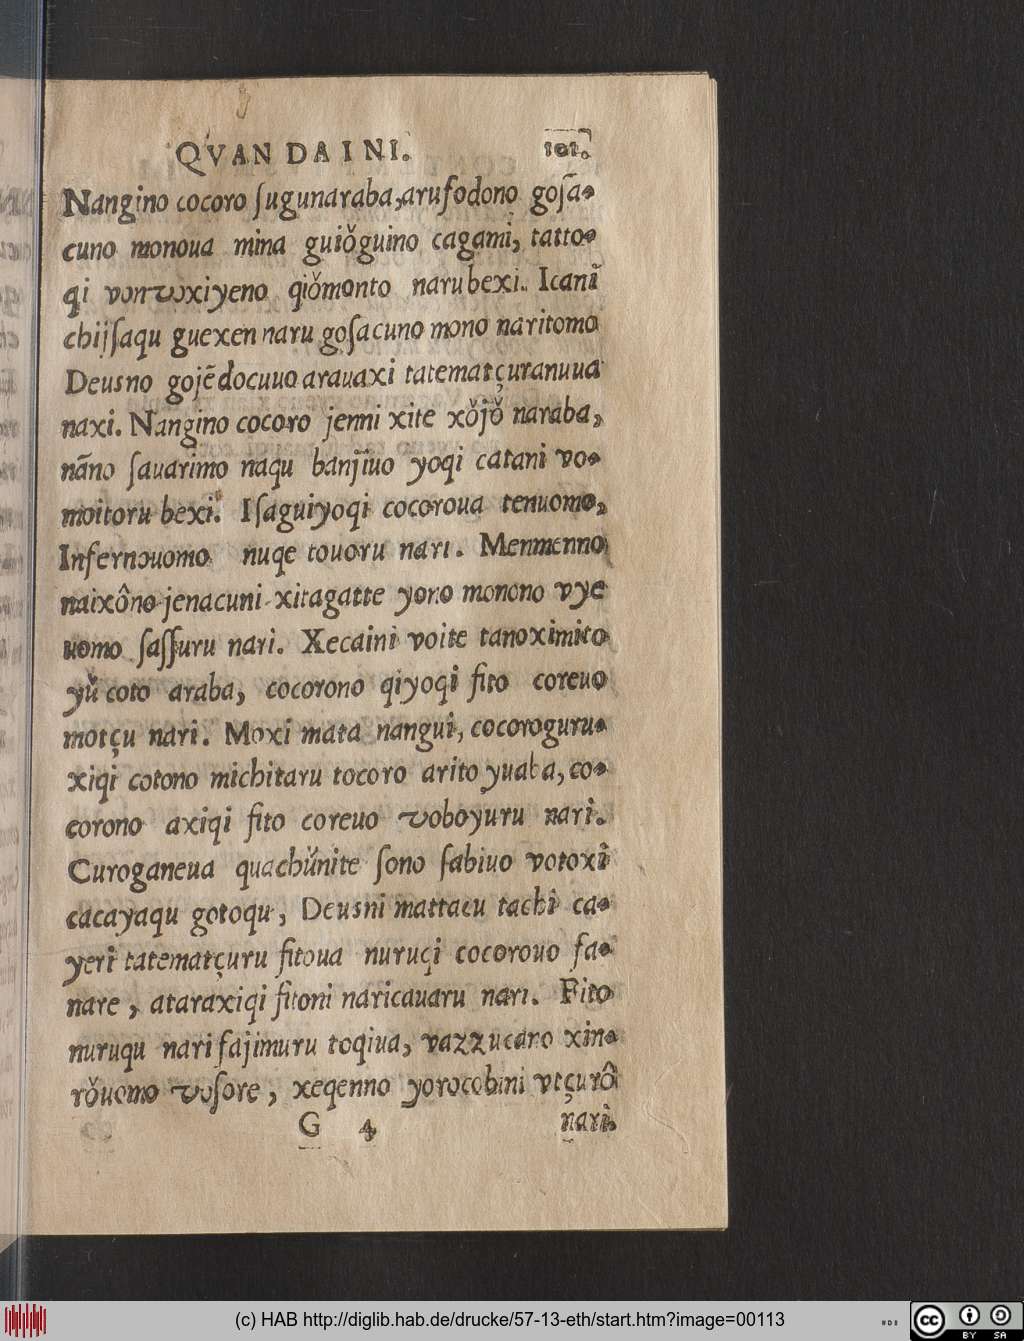 QVAN DAI NI.
101.
Nangino cocoro ſugunaraba, arufodono goſã-
cuno monoua mina guiǒguino cagami, tatto-
qi vonvoxiyeno qiǒmonto narubexi. Icanĩ
chijſaqu guexen naru goſacuno mono naritomo
Deusno gojẽdocuuo arauaxi tatematçuranuua
naxi. Nangino cocoro jenni xite xǒjǒ naraba,
nãno ſauarimo naqu banjĩuo yoqi catani vo-
moitoru bexi. Iſaguiyoqi cocoroua tenuomo,
Infernouomo nuqe touoru nari. Menmenno
naixôno jenacuni xitagatte yoro monono vye
uomo ſaſſuru nari. Xecaini voite tanoximito
yŭ coto araba, cocorono qiyoqi fito coreuo
motçu nari. Moxi mata nangui, cocoroguru-
xiqi cotono michitaru tocoro arito yuaba, co-
corono axiqi fito coreuo voboyuru nari.
Curoganeua quachŭnite ſono ſabiuo votoxi
cacayaqu gotoqu, Deusni mattacu tachi ca-
yeri tatematçuru fitoua nuruqi cocorouo fa-
nare, ataraxiqi fitoni naricauaru nari. Fito
nuruqu nari fajimuru toqiua, vazzucaro xin-
rǒuomo voſore, xeqenno yorocobini vtçurô
G 4
nari.
(c) HAB http://diglib.hab.de/drucke/57-13-eth/start.htm?image=00113
cc
BY SA